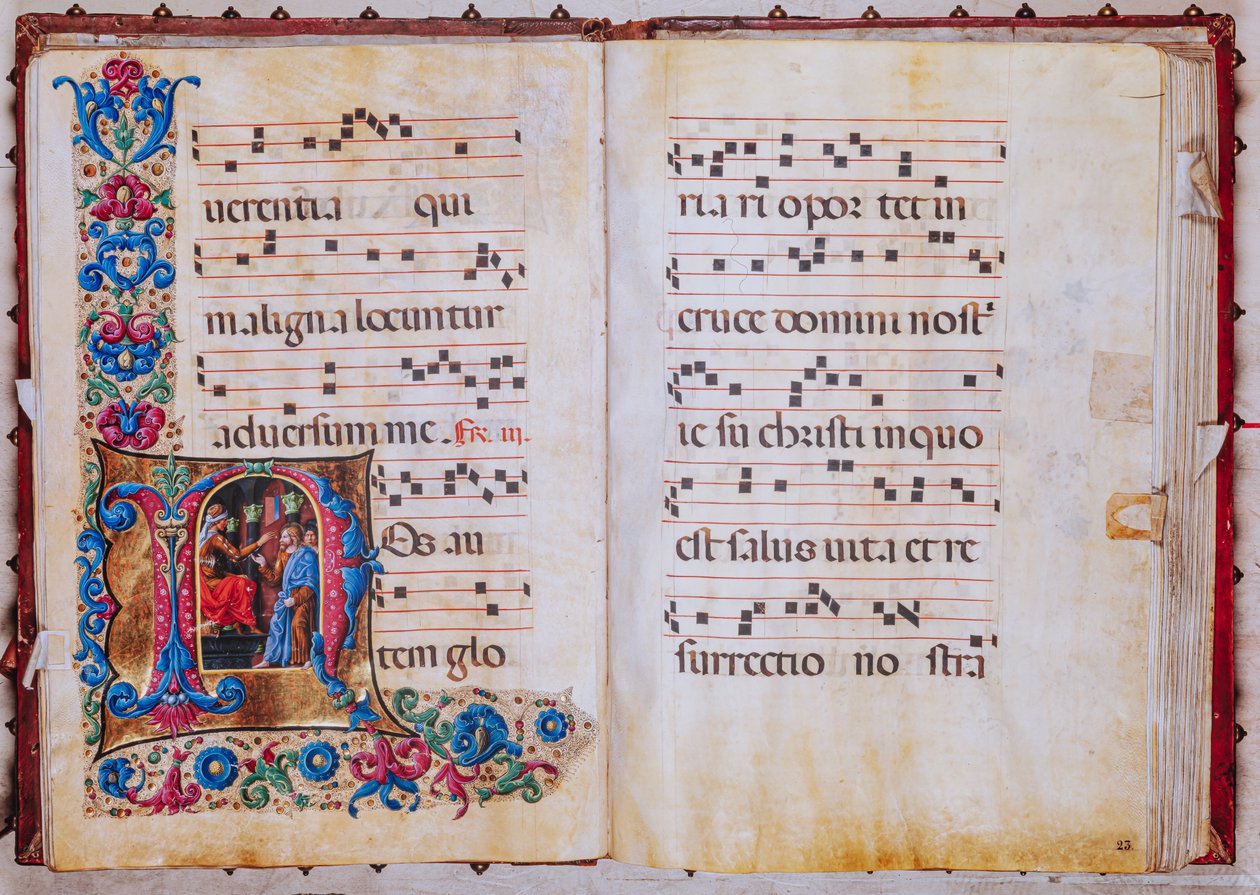 uerentur qui
maligna locuntur
aduersum me. Fr. iii.
NOs au
tem glo
ria ri opor tet in
cruce domini nostr
ie su christi in quo
est salus uita et re
surrectio no stra
23.